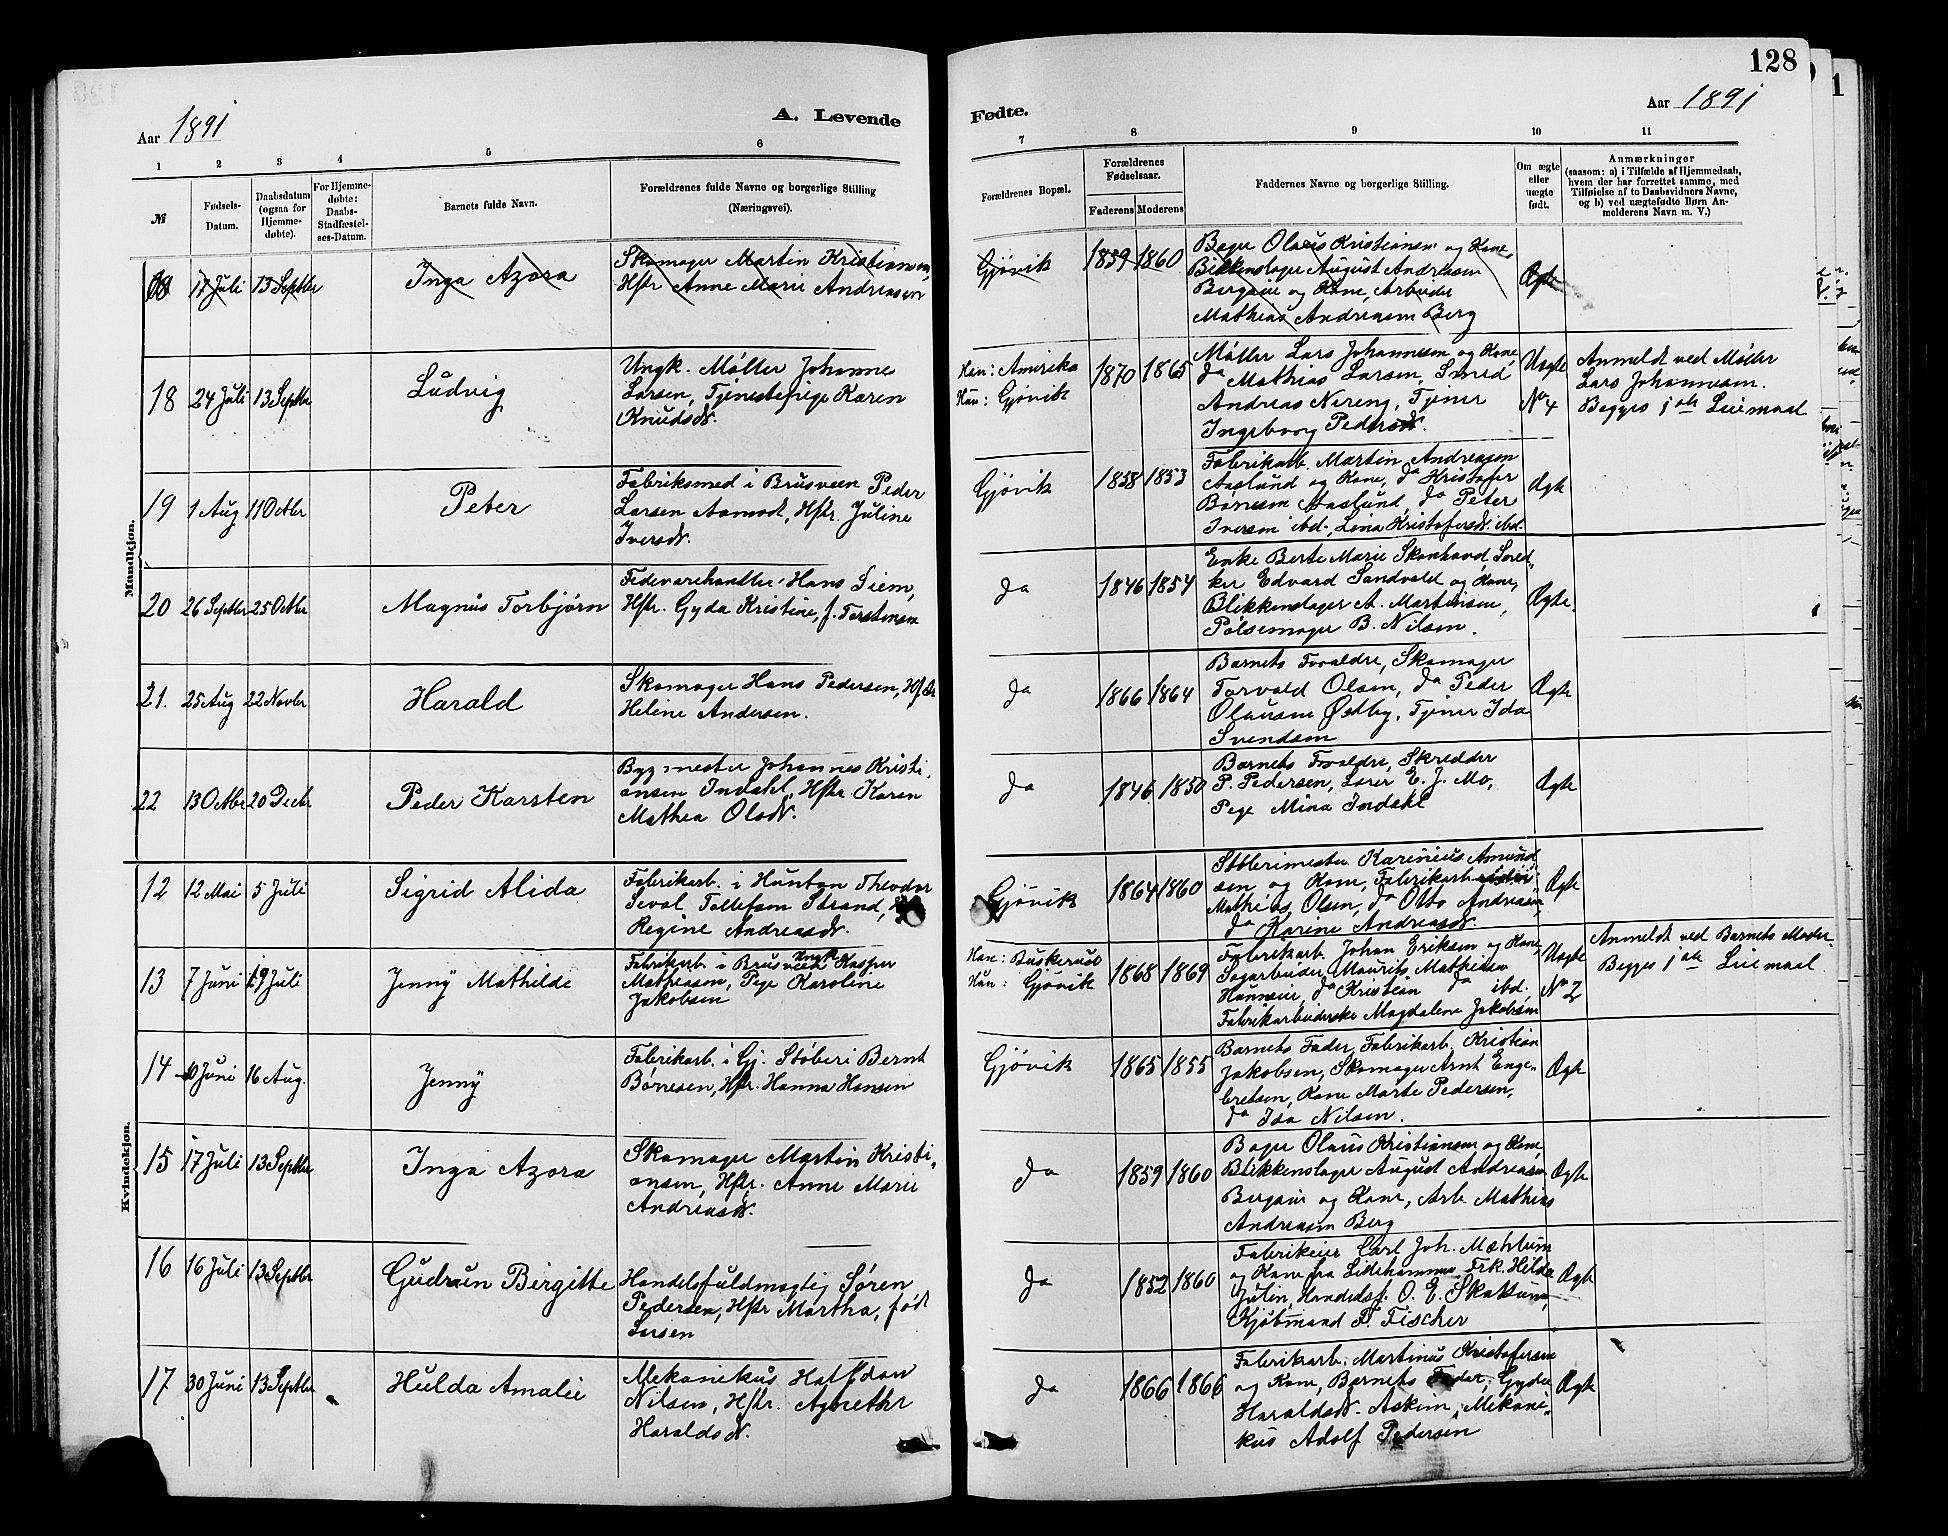 128
Aar 1891
A. Levende
Fødte.
Aar 1891
1
2
3
4
5
6
7
8
9
10
11
№
Fødsels-
Datum.
Daabsdatum
(ogsaa for
Hjemme-
døbte).
For Hjemme-
døbte:
Daabs-
Stadfæstel-
ses-Datum.
Barnets fulde Navn.
Forældrenes fulde Navne og borgerlige Stilling
(Næringsvei).
Forældrenes Bopæl.
Forældrenes
Fødselsaar.
Faderens
Moderens
Faddernes Navne og borgerlige Stilling.
Om ægte
eller
uægte
født.
Anmærkninger
(saasom: a) i Tilfælde af Hjemmedaab,
hvem der har forrettet samme, med
Tilføielse af to Daabsvidners Navne,
og b) ved uægtefødte Børn An-
melderens Navn m. V.)
Mandkjøn.
18 17 Juli 13 Septbr
Inga Azora
Skomager Martin Kristiansen,
Hstr Anne Marie Andreasen
Gjøvik 1859 1860
Bager Olaus Kristiansen og Kone,
Blikkenslager August Andreasen
Bergseie og Kone, Arbeider
Mathias Andreasen Berg
Ægte
18 24 Juli 13 Septbr
Ludvig
Ungk. Møller Johanne
Larsen, Tjenestepige Karen
Knudsdr.
Han: Amerika
Hun: Gjøvik
1870 1865
Møller Lars Johannesen og Kone
do Mathias Larsen, Smed
Andreas Nereng, Tjener
Ingeborg Pedersdr
Uægte
No 4
Anmeldt ved Møller
Lars Johannesen.
Begges 1ste Leiermaal
19 1 Aug 11 Octbr
Peter
Fabriksmed i Brusveen Peder
Larsen Aamodt, Hstr. Juline
Iversdr.
Gjøvik 1858 1853
Fabrikarb. Martin Andreasen
Aaslund og Kone, do Kristofer
Børresen Aaslund, do Peter
Iversen ibd., Lina Kristofersdr. ibd.
Ægte
20 26 Septbr 25 Octbr
Magnus Torbjørn
Fedevarehandler Hans Siem,
Hstr. Gyda Kristine, f. Torstensen
do 1846 1854
Enke Berte Marie Skonhovd, Sned-
ker Edvard Sandvold og Kone,
Blikkenslager A. Martinsen,
Pølsemager B. Nilsen.
Ægte.
21. 25 Aug 22 Novbr
Harald
Skomager Hans Pedersen, Hstr
Heline Andersen.
do 1866 1864
Barnets Forældre, Skomager
Torvald Olsen, do Peder
Olausen Østby, Tjener Ida
Svendsen
Ægte
22 13 Octbr 20 Decbr
Peder Karsten
Bygmester Johannes Kristi-
ansen Indahl, Hstr Karen
Mathea Olsdr.
do 1846 1850
Barnets Forældre, Skredder
P. Pedersen, Lærer E. J. Mo,
Pige Mina Indahl
Ægte
Kvindekjøn.
12 12 Mai 5 Juli
Sigrid Alida
Fabrikarb. i Hunton Theodor
Seval Tollefsen Strand,
Regine Andreasdr.
Gjøvik 1864 1860
Støberimester Karinius Amund
sen og Kone, Fabrikarb.
Mathias Olsen, do Otto Andreasen,
do Karine Andreasdr.
Ægte
13 7 Juni 19 Juli
Jenny Mathilde
Fabrikarb. i Brusveen Ungk Kasper
Mathiesen, Pige Karoline
Jakobsen
Han: Buskerud
Hun: Gjøvik
1868 1869
Fabrikarb. Johan Eriksen og Kone,
Sagarbeider Maurits Mathiesen
Hunnseie, do Kristean do ibd.,
Fabrikarbeiderske Magdalene Jakobsen
Uægte
No 2
Anmeldt ved Barnets Moder.
Begges 1ste Leiermaal
14 10 Juni 16 Aug.
Jenny
Fabrikarb. i Gj. Støberi Bernt
Børresen, Hstr. Hanna Hansen
Gjøvik 1865 1855
Barnets Fader, Fabrikarb. Kristian
Jakobsen, Skomager Arnt Enge-
bretsen, Kone Marte Pedersen,
do Ida Nilsen.
Ægte
15 17 Juli 13 Septbr
Inga Azora
Skomager Martin Kristi-
ansen, Hstr. Anne Marie
Andreasdr.
do 1859 1860
Bager Olaus Kristiansen og Kone,
Blikkenslager August Andreasen
Bergseie og Kone, Arb. Mathias
Andreasen Berg
Ægte
16 16 Juli 13 Septbr
Gudrun Birgitte
Handelsfuldmægtig Søren
Pedersen, Hstr Martha, født
Larsen
do 1852 1860
Fabrikeier Carl Joh. Mæhlum
og Kone fra Lillehammer, Frk. Hilda
Julin, Handelsf. O. E. Skattum,
Kjøbmand P. Fischer
Ægte
17 30 Juni 13 Septbr
Hulda Amalie
Mekanikus Halfdan
Nilsen, Hstr. Agnethe
Haraldsdr.
do 1866 1866
Fabrikarb. Martinus Kristofersen
og Kone, Barnets Fader, Gyda
Haraldsdr. Askim, Mekani-
kus Adolf Pedersen
Ægte